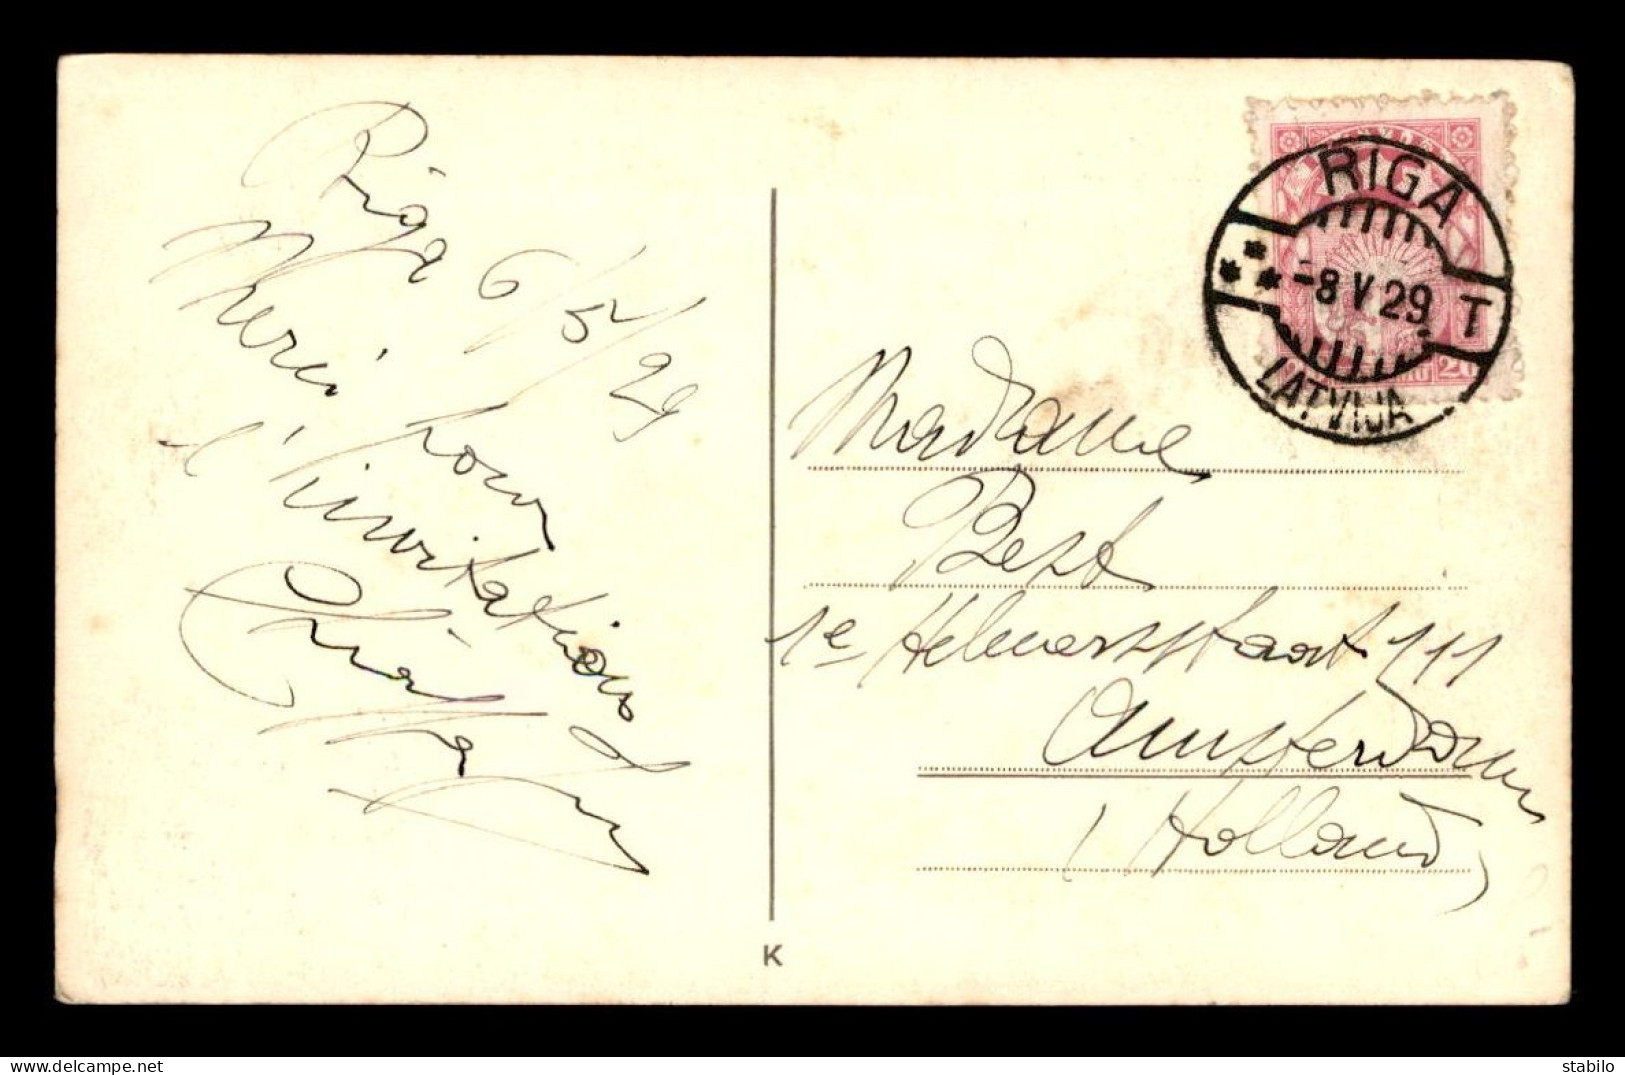 Riga 6/5/29
Merci pour
l'invitation
RIGA
-8 V 29 T
LATVIJA
20
Madame
Best
1e Helmersstraat 111
Amsterdam
(Holland)
K
stabilo